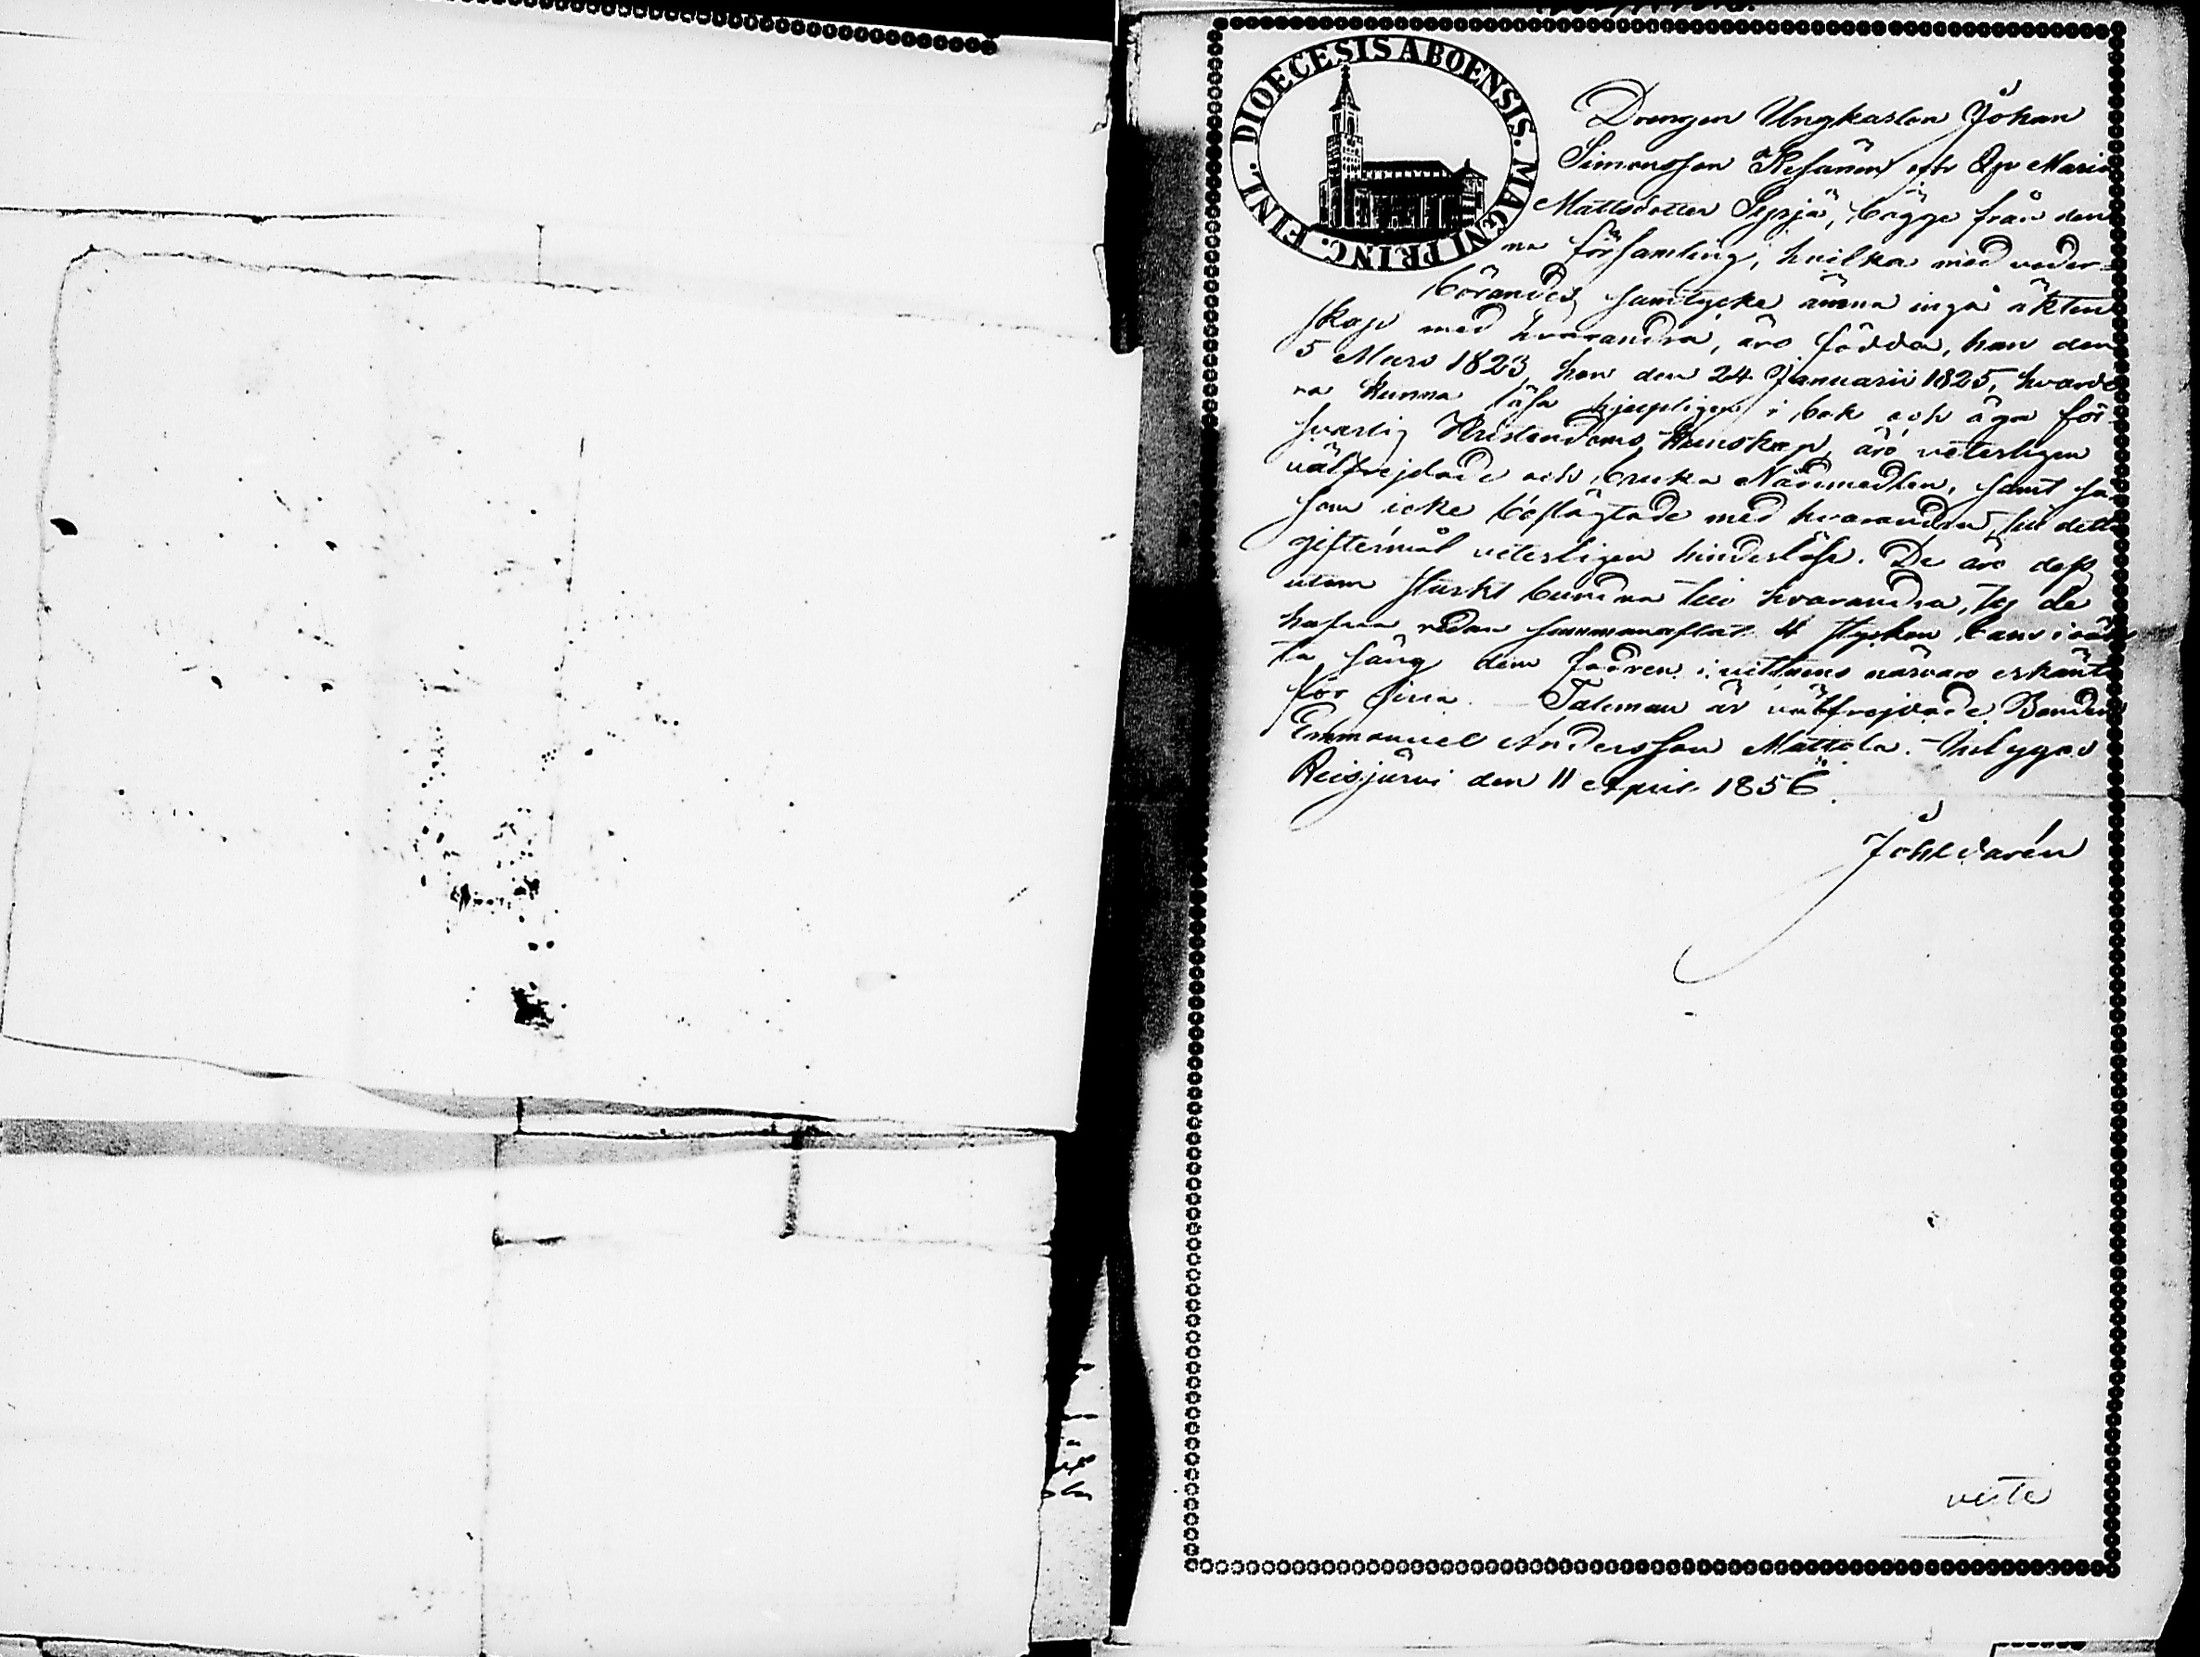 DIOECESIS ABOENSIS. MAGNI PRINC. FINL.
Drengen Ungkarlen Johan
Simonsson Kesänen och Qp Maria
Mattsdotter Syrjä, bägge från den
na församling, hvilka med veder-
börandes samtycke ämna ingå äkten
skap med hvarandra, äro födda, han den
5 Mars 1823, hon den 24 Januarii 1825, hvarde
ra kunna läsa hjelpligen i bok och äga för
svarlig Kristendoms kunskap, äro veterligen
välfrejdade och bruka Nådemedlen, samt så
som icke beslägtade med hvarandra, till detta
giftermål veterligen hinderlöse. De äro dess
utom starkt bundna till hvarandra, ty de
hafva redan sammanaflat 4 stycken barn i
ta säng dem fadren i vittnens närvaro erkänt
för sina. Taleman är välfrejdade Bonden
Emmanuel Andersson Mattola. – Intygas
Reisjärvi den 11 April 1856.
Joh Edvarén
veste